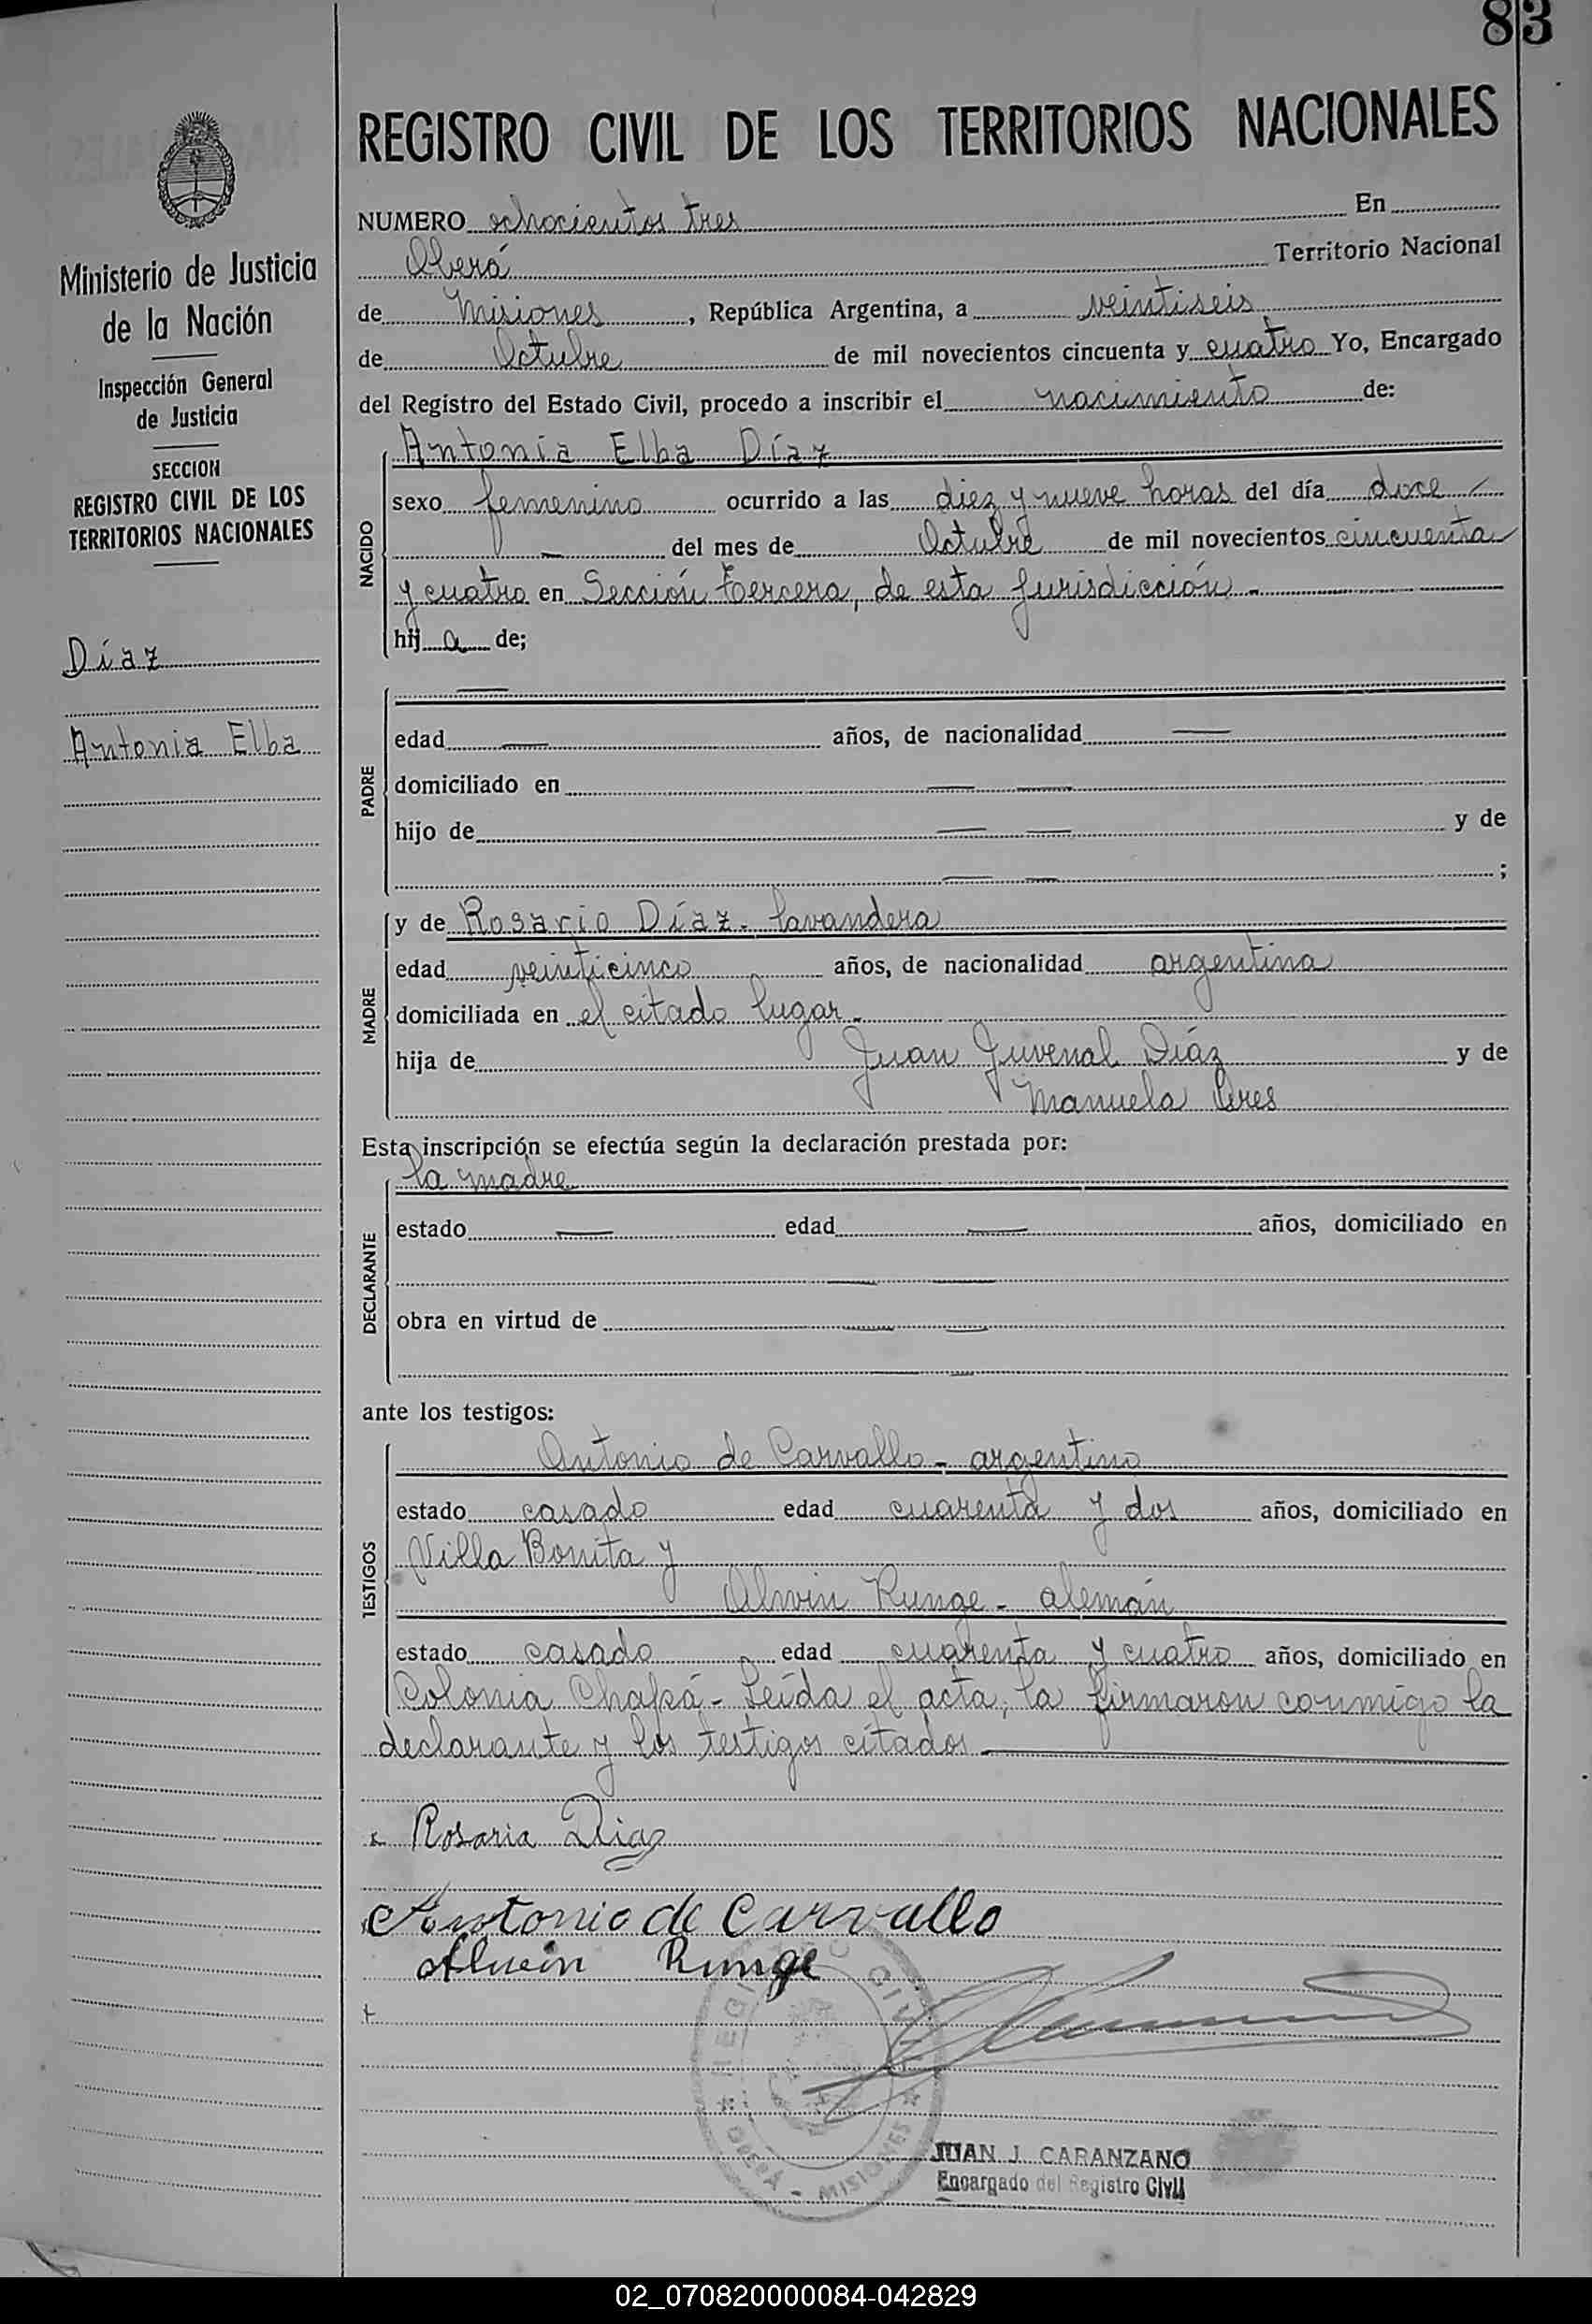 83
REGISTRO CIVIL DE LOS TERRITORIOS NACIONALES
Ministerio de Justicia
de la Nación
Inspección General
de Justicia
SECCION
REGISTRO CIVIL DE LOS
TERRITORIOS NACIONALES
Díaz
Antonia Elba
NUMERO ochocientos tres En
Oberá Territorio Nacional
de Misiones, República Argentina, a veintiseis
de Octubre de mil novecientos cincuenta y cuatro Yo, Encargado
del Registro del Estado Civil, procedo a inscribir el nacimiento de:
NACIDO
Antonia Elba Díaz
sexo femenino ocurrido a las diez y nueve horas del día doce
— del mes de Octubre de mil novecientos cincuenta
y cuatro en Sección tercera, de esta jurisdicción -
hij a de;
PADRE
—
edad — años, de nacionalidad —
domiciliado en — —
hijo de — — y de
— — ;
MADRE
y de Rosario Díaz - lavandera
edad veinticinco años, de nacionalidad argentina
domiciliada en el citado lugar -
hija de Juan Juvenal Díaz y de
Manuela Peres
Esta inscripción se efectúa según la declaración prestada por:
DECLARANTE
la madre
estado — edad — años, domiciliado en
— —
obra en virtud de — —
— —
ante los testigos:
TESTIGOS
Antonio de Carvallo - argentino
estado casado edad cuarenta y dos años, domiciliado en
Villa Bonita y
Alwin Runge - alemán
estado casado edad cuarenta y cuatro años, domiciliado en
Colonia Chapá - Leída el acta, la firmaron conmigo la
declarante y los testigos citados —
Rosaria Diaz
Antonio de Carvallo
Alwin Runge
REGISTRO CIVIL
OBERÁ - MISIONES
JUAN J. CARANZANO
Encargado del Registro Civil
02_070820000084-042829